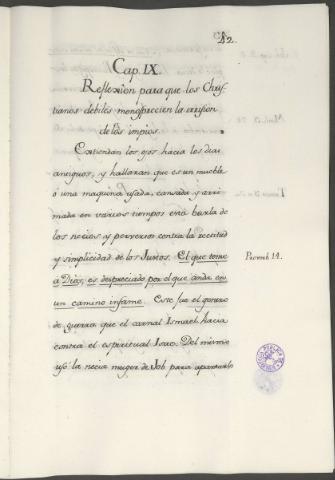 52.
Cap. IX.
Reflexion para que los Chris-
tianos debiles menosprecien la irrision
de los impios.
Extiendan los ojos hacia los dias
antiguos, y hallaran que es un mueble
ó una maquina usada, cansada y arri-
mada en varios tiempos esta burla de
los necios y perversos contra la rectitud
y simplicidad de los Justos. El que teme
a Dios, es despreciado por el que anda en
un camino infame. Este fue el genero
de guerra que el carnal Ismael hacia
contra el espiritual Isac. Del mismo
usó la necia muger de Job para apartarlo
Proverb. 14.